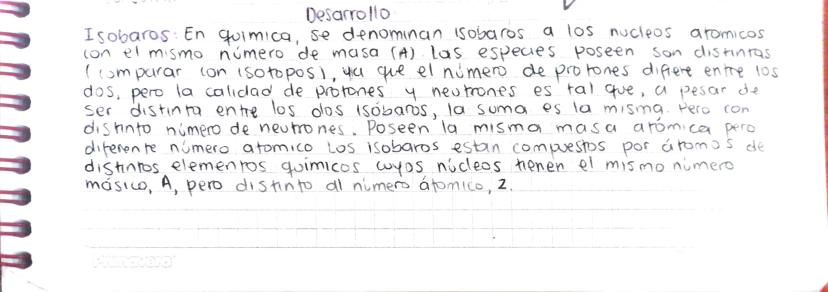 Desarrollo
Isobaros: En quimica, se denominan isobaros a los nucleos atomicos
con el mismo número de masa (A). las especies poseen son distintas
(comparar con isotopos), ya que el número de protones difiere entre los
dos, pero la calidad de protones y neutrones es tal que, a pesar de
ser distinta entre los dos isóbaros, la suma es la misma. Pero con
distinto número de neutrones. Poseen la misma masa atómica pero
diferente número atomico Los isobaros estan compuestos por átomos de
distintos elementos químicos cuyos núcleos tienen el mismo número
másico, A, pero distinto al número átomico, Z.
Primavera